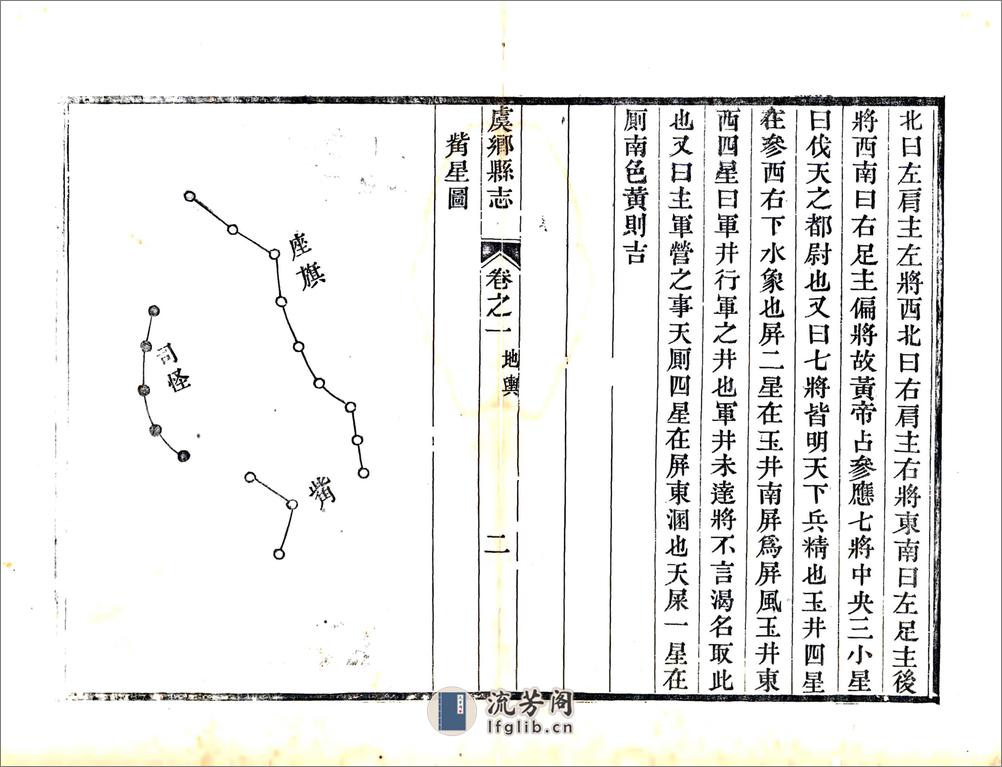 北曰左肩主左將西北曰右肩主右將東南曰左足主後
將西南曰右足主偏將故黃帝占參應七將中央三小星
曰伐天之都尉也又曰七將皆明天下兵精也玉井四星
在參西右下水象也屏二星在玉井南屏爲屏風玉井東
西四星曰軍井行軍之井也軍井未達將不言渴名取此
也又曰主軍營之事天厠四星在屏東溷也天屎一星在
厠南色黃則吉
虞鄉縣志
卷之一
地輿
二
觜星圖
座旗
司怪
觜
流芳阁
lfglib.cn